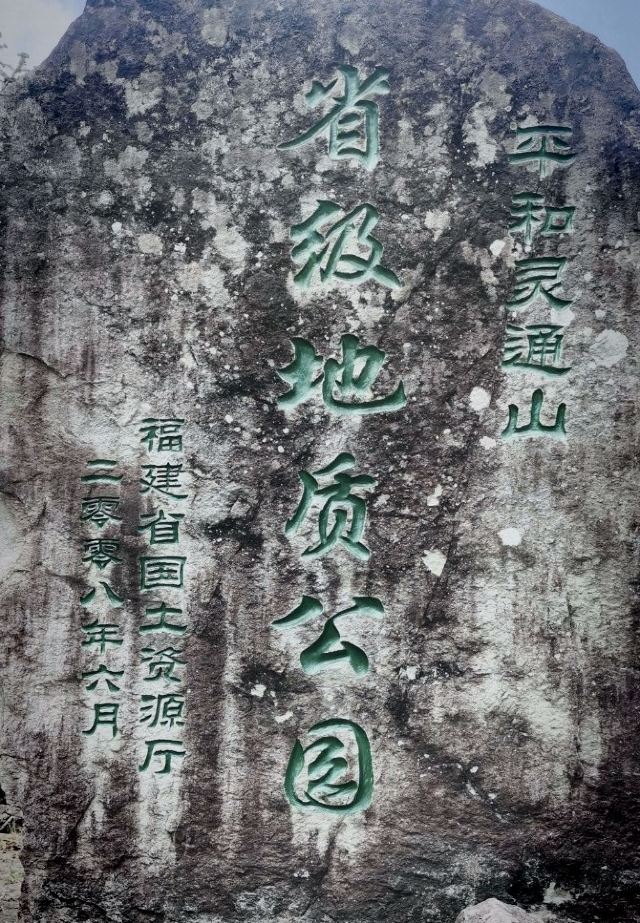 平和灵通山
省级地质公园
福建省国土资源厅
二零零八年六月